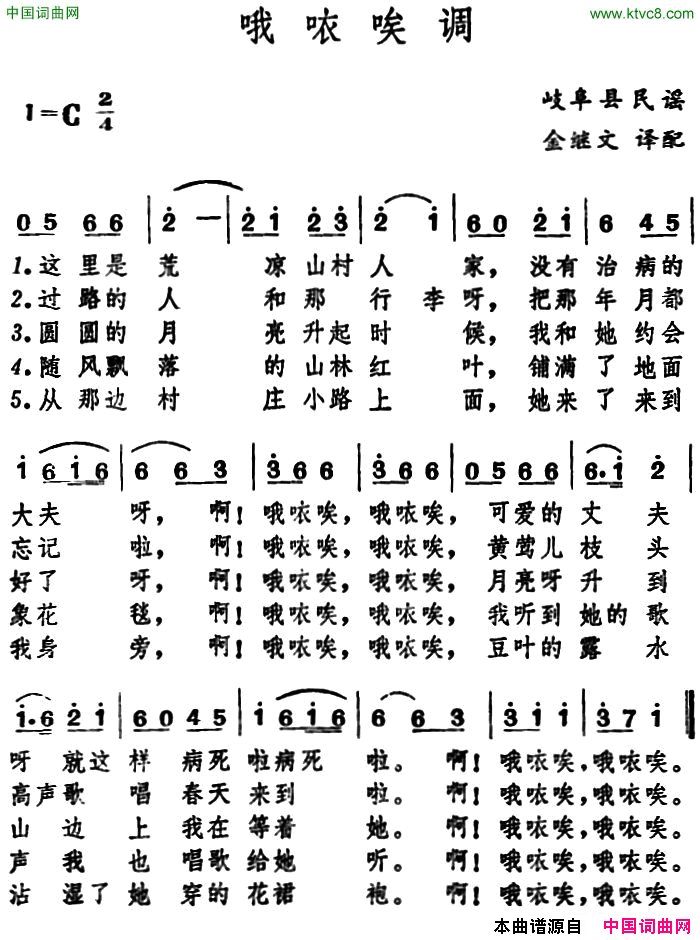 中国词曲网
www.ktvc8.com
哦哝唉调
1=C 2/4
岐阜县民谣
金继文 译配
05 66 | 2 — | 21 23 | 2 1 | 60 21 | 6 45 |
1.这里是荒 凉山村人 家，没有治病的
2.过路的人 和那 行李呀，把那年月都
3.圆圆的月 亮升起时 候，我和她约会
4.随风飘落 的山林红 叶，铺满了地面
5.从那边村 庄小路上 面，她来了来到
1 616 | 6 63 | 3 66 | 3 66 | 05 66 | 6.1 2 |
大夫 呀， 啊！哦哝唉，哦哝唉，可爱的丈夫
忘记 啦， 啊！哦哝唉，哦哝唉，黄莺儿枝头
好了 呀， 啊！哦哝唉，哦哝唉，月亮呀升到
象花 毯， 啊！哦哝唉，哦哝唉，我听到她的歌
我身 旁， 啊！哦哝唉，哦哝唉，豆叶的露水
1.6 21 | 60 45 | 1 616 | 6 63 | 3 11 | 37 1 ‖
呀 就这样 病死啦病死 啦。 啊！哦哝唉，哦哝唉。
高声歌 唱 春天来到 啦。 啊！哦哝唉，哦哝唉。
山 边上我在等着 她。 啊！哦哝唉，哦哝唉。
声我 也 唱歌给她 听。 啊！哦哝唉，哦哝唉。
沾 湿了她 穿的花裙 袍。 啊！哦哝唉，哦哝唉。
本曲谱源自 中国词曲网